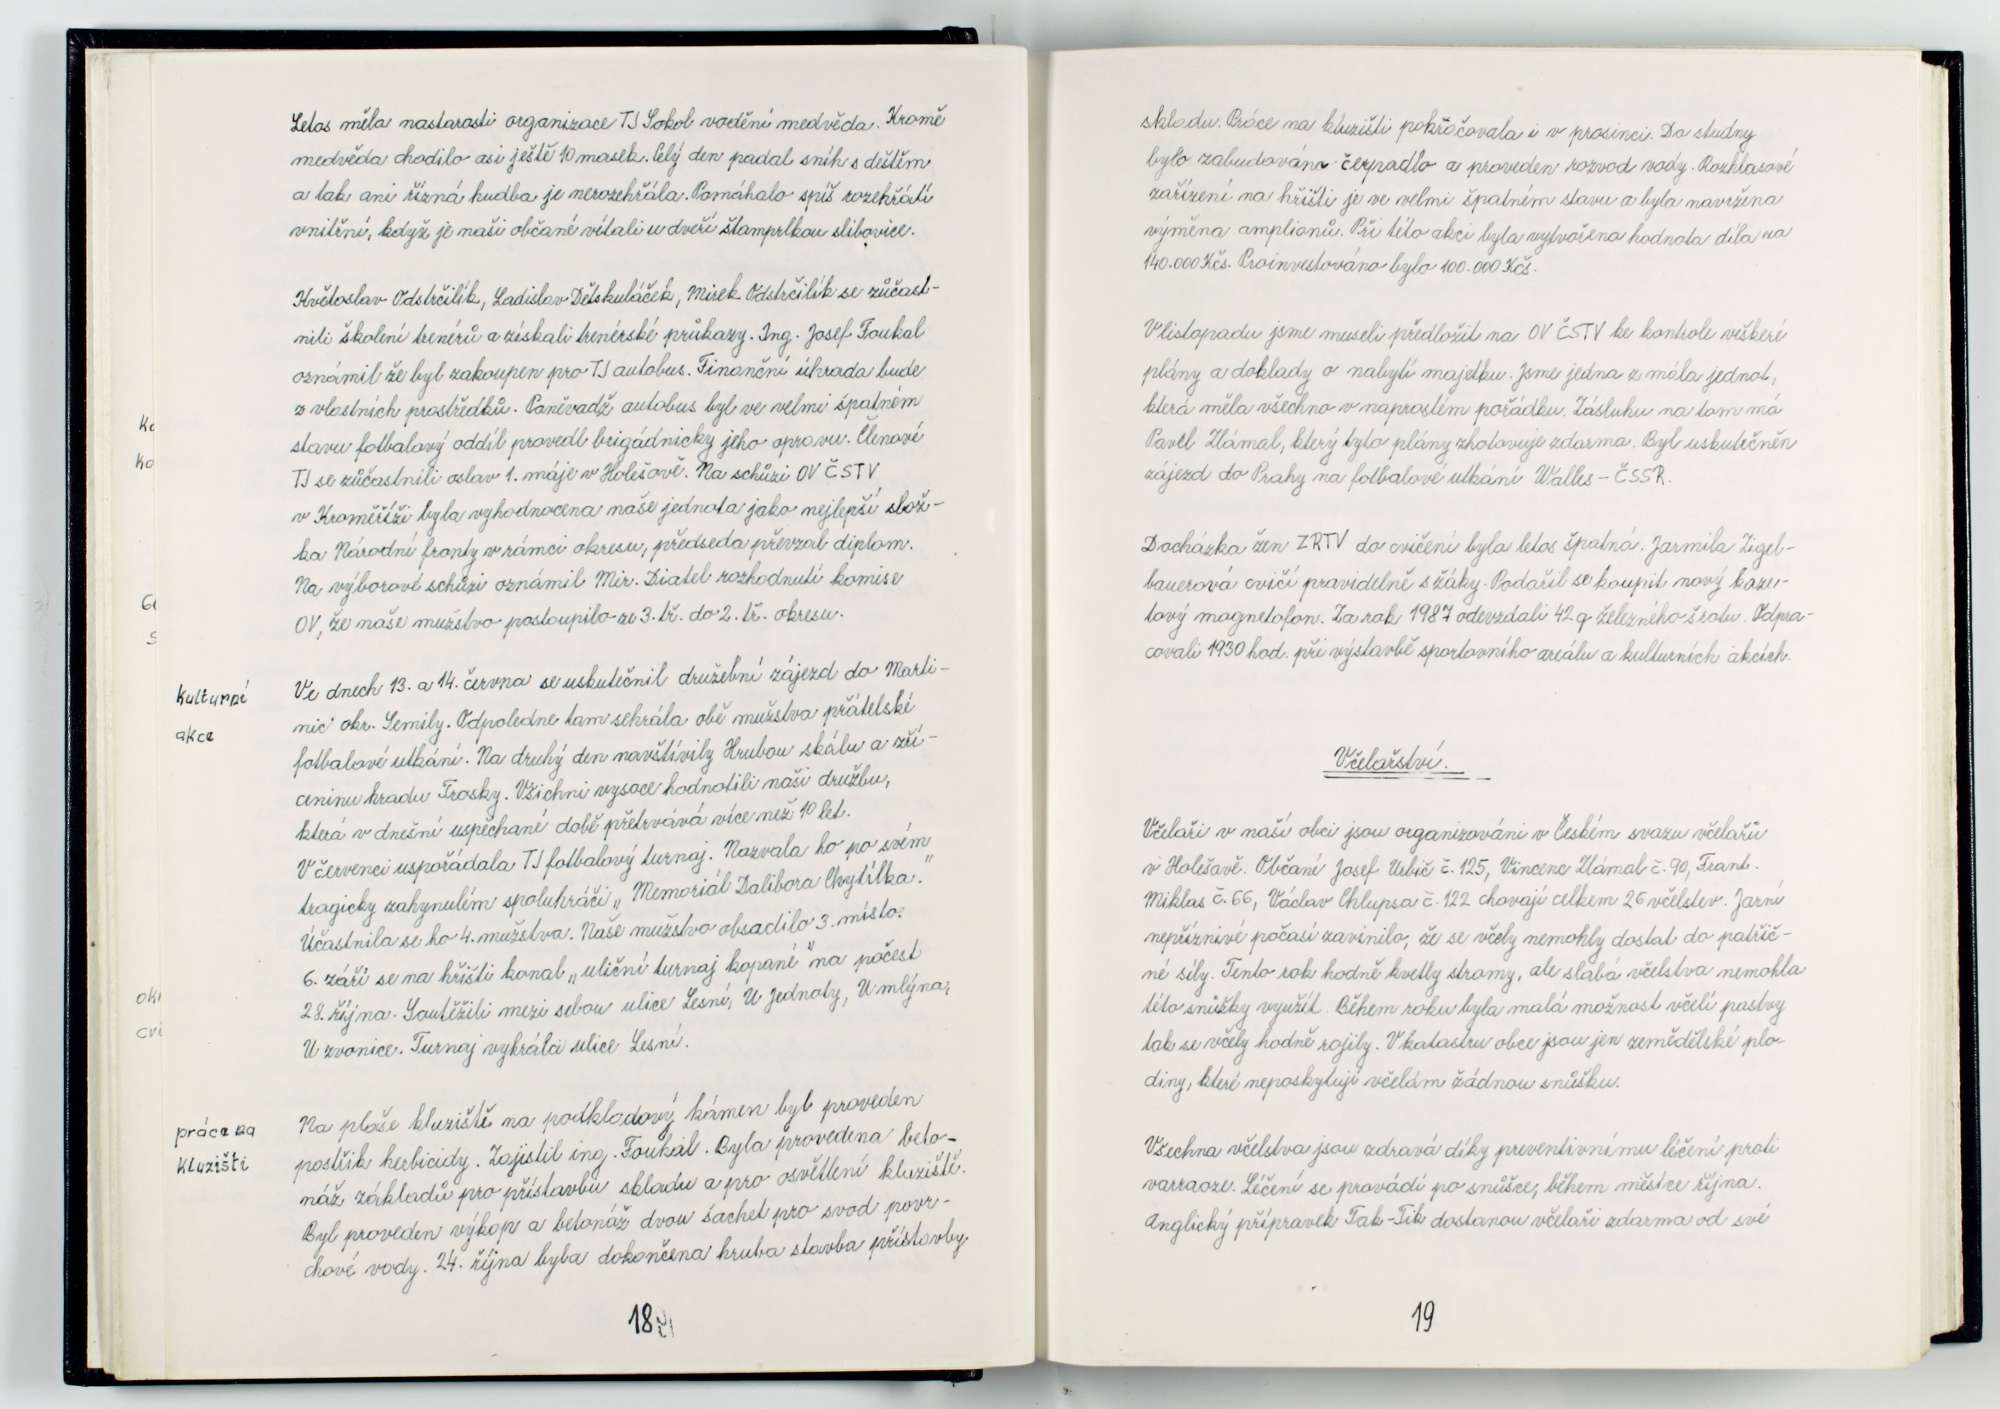 Letos měla nastarosti organizace TJ Sokol vodění medvěda. Kromě
medvěda chodilo asi ještě 10 masek. Celý den padal sníh s deštěm
a tak ani řízná hudba je nerozehřála. Pomáhalo spíš rozehřátí
vnitřní, když je naši občané vítali u dveří štamprlkou slibovice.
Květoslav Odstrčilík, Ladislav Dětskuláček, Mirek Odstrčilík se zůčast-
nili školení trenérů a získali trenérské průkazy. Ing. Josef Foukal
oznámil že byl zakoupen pro TJ autobus. Finanční úhrada bude
z vlastních prostředků. Poněvadž autobus byl ve velmi špatném
stavu fotbalový oddíl provedl brigádnicky jeho opravu. Členové
TJ se zůčastnili oslav 1. máje v Holešově. Na schůzi OV ČSTV
v Kroměříži byla vyhodnocena naše jednota jako nejlepší slož-
ka Národní fronty v rámci okresu, předseda převzal diplom.
Na výborové schůzi oznámil Mir. Diatel rozhodnutí komise
OV, že naše mužstvo postoupilo ze 3. tř. do 2. tř. okresu.
Kulturní
akce
Ve dnech 13. a 14. června se uskutečnil družební zájezd do Marti-
nic okr. Semily. Odpoledne tam sehrála obě mužstva přátelské
fotbalové utkání. Na druhý den navštívily Hrubou skálu a zří-
ceninu hradu Trosky. Všichni vysoce hodnotili naši družbu,
která v dnešní uspěchané době přetrvává více než 10 let.
V červenci uspořádala TJ fotbalový turnaj. Nazvala ho po svém
tragicky zahynulém spoluhráči „Memoriál Dalibora Chytilka."
Účastnila se ho 4. mužstva. Naše mužstvo obsadilo 3. místo.
6. září se na hřišti konal „uliční turnaj kopané" na počest
28. října. Soutěžili mezi sebou ulice Lesní, U Jednoty, U mlýna,
U zvonice. Turnaj vyhrálci ulice Lesní.
práce na
kluzišti
Na ploše kluziště na podkladový kámen byl proveden
postřik herbicidy. Zajistil ing. Foukal. Byla provedena beto-
náž základů pro přístavbu skladu a pro osvětlení kluziště.
Byl proveden výkop a betonáž dvou šachet pro svod povr-
chové vody. 24. října byla dokončena hrubá stavba přístavby
18
skladu. Práce na kluzišti pokračovala i v prosinci. Do studny
bylo zabudováno čerpadlo a proveden rozvod vody. Rozhlasové
zařízení na hřišti je ve velmi špatném stavu a byla navržena
výměna amplionů. Při této akci byla vytvořena hodnota díla na
140.000 Kčs. Proinvestováno bylo 100.000 Kčs.
V listopadu jsme museli předložit na OV ČSTV ke kontrole veškeré
plány a doklady o nabytí majetku. Jsme jedna z mála jednot,
která měla všechno v naprostém pořádku. Zásluhu na tom má
Pavel Zlámal, který tyto plány zhotovuje zdarma. Byl uskutečněn
zájezd do Prahy na fotbalové utkání Walles – ČSSR.
Docházka žen ZRTV do cvičení byla letos špatná. Jarmila Zigel-
bauerová cvičí pravidelně s žáky. Podařil se koupit nový kaze-
tový magnetofon. Za rok 1987 odevzdali 42 q železného šrotu. Odpra-
covali 1930 hod. při výstavbě sportovního areálu a kulturních akcích.
Včelařství.
Včelaři v naší obci jsou organizováni v Českém svazu včelařů
v Holešavě. Občané Josef Urbič č. 125, Vincenc Zlámal č. 90, Frant.
Miklas č. 66, Václav Chlupsa č. 122 chovají celkem 26 včelstev. Jarní
nepříznivé počasí zavinilo, že se včely nemohly dostat do patřič-
né síly. Tento rok hodně kvetly stromy, ale slabá včelstva nemohla
této snůžky využít. Během roku byla malá možnost včelí pastvy
tak se včely hodně rojily. V katastru obce jsou jen zemědělské plo-
diny, které neposkytují včelám žádnou snůšku.
Všechna včelstva jsou zdravá díky preventivnímu léčení proti
varraoze. Léčení se provádí po snůšce, během měsíce října.
Anglický přípravek Tak-Tik dostanou včelaři zdarma od své
19